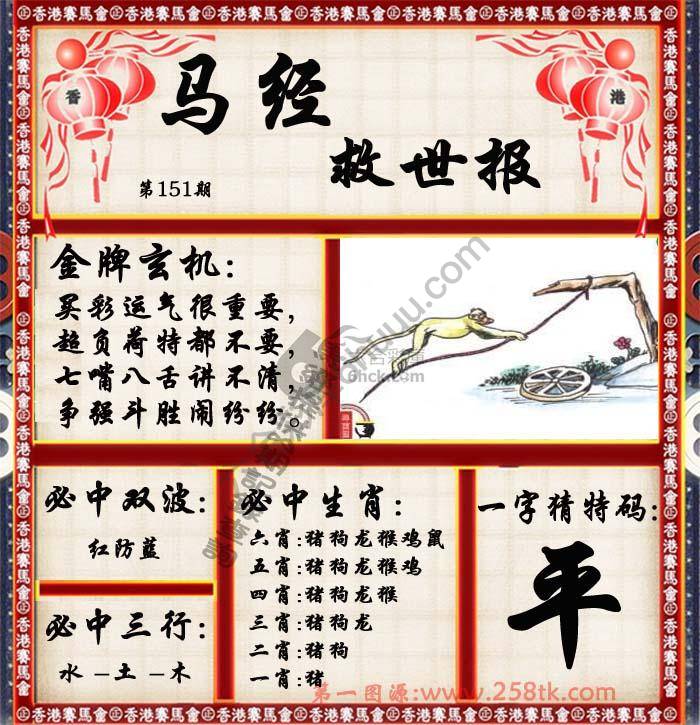 香港賽馬會
香
港
马经
救世报
第151期
金牌玄机:
买彩运气很重要,
超负荷特都不要,
七嘴八舌讲不清,
争强斗胜闹纷纷。
必中双波:
红防蓝
必中三行:
水–土–木
必中生肖:
六肖:猪狗龙猴鸡鼠
五肖:猪狗龙猴鸡
四肖:猪狗龙猴
三肖:猪狗龙
二肖:猪狗
一肖:猪
一字猜特码:
平
第一图源:www.258tk.com